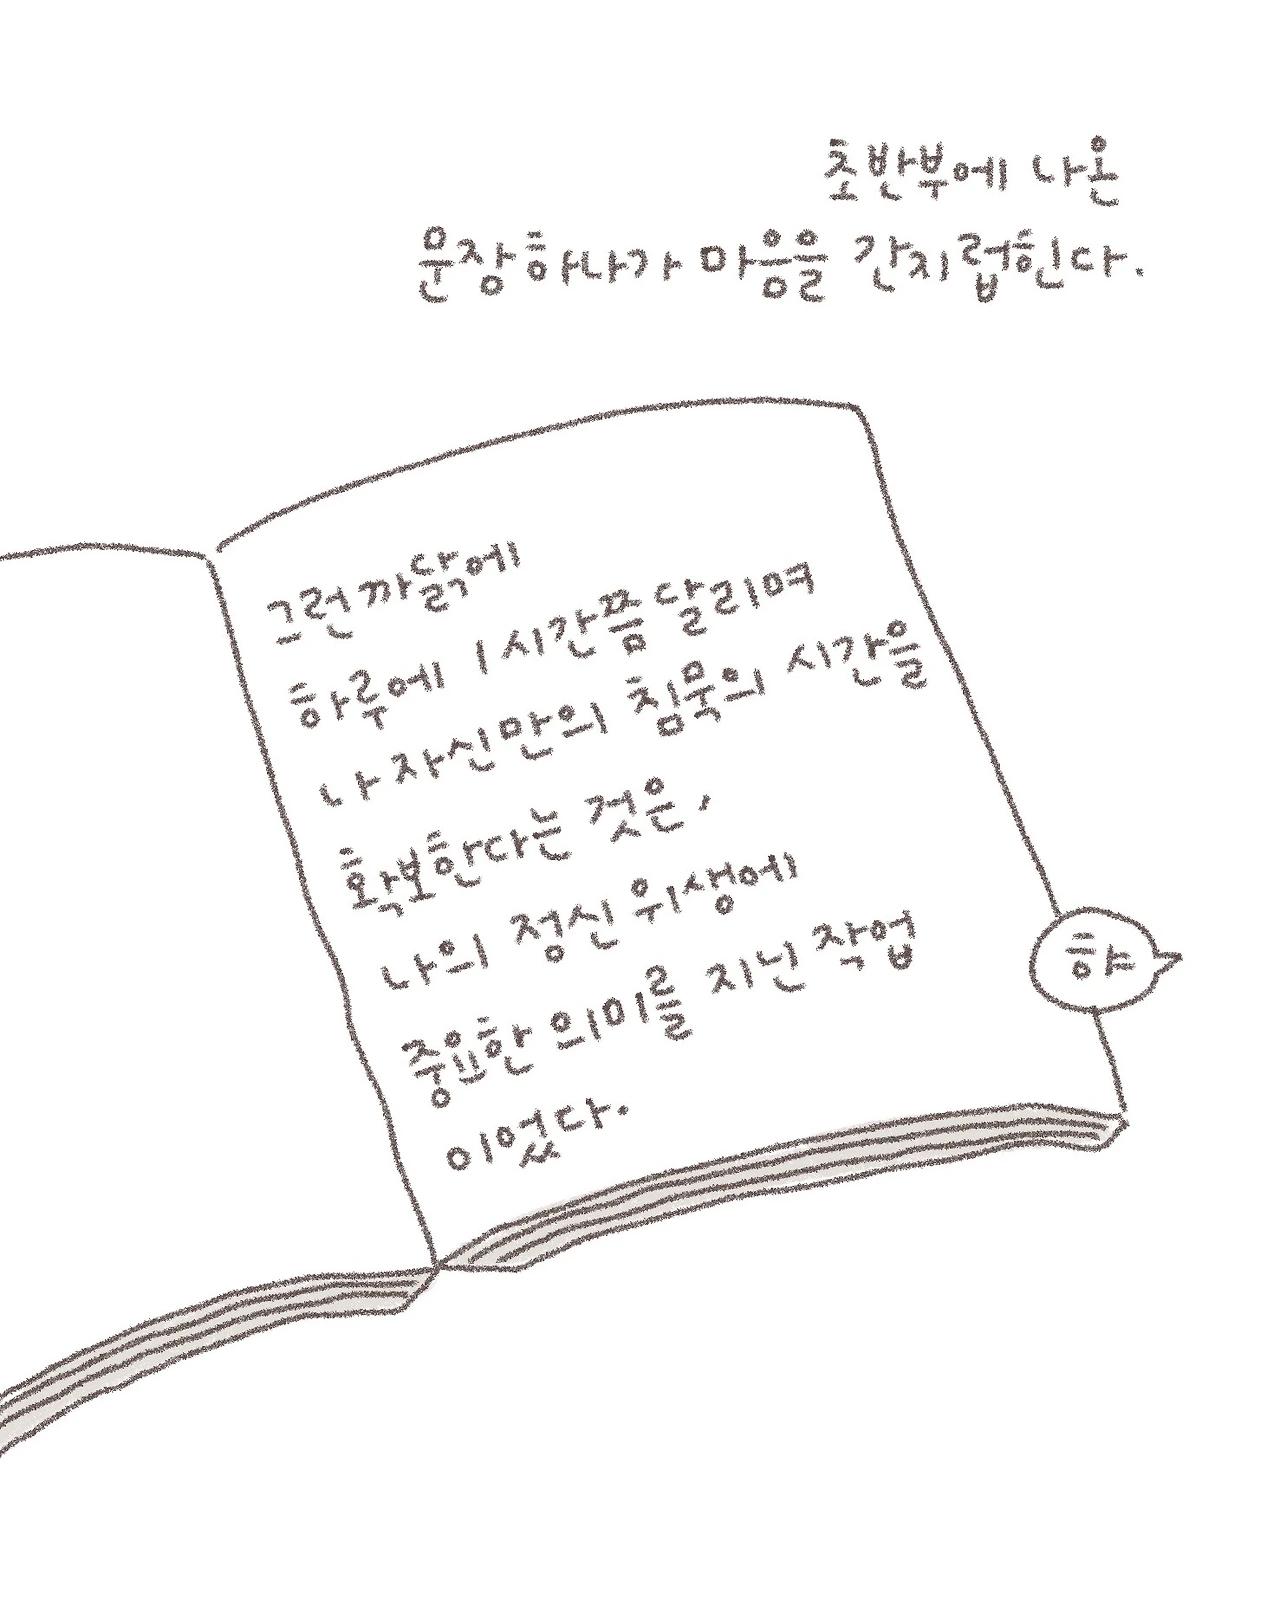 초반부에 나온
문장 하나가 마음을 간지럽힌다.
그런 까닭에
하루에 1시간쯤 달리며
나 자신만의 침묵의 시간을
확보한다는 것은,
나의 정신 위생에
중요한 의미를 지닌 작업
이었다.
햐